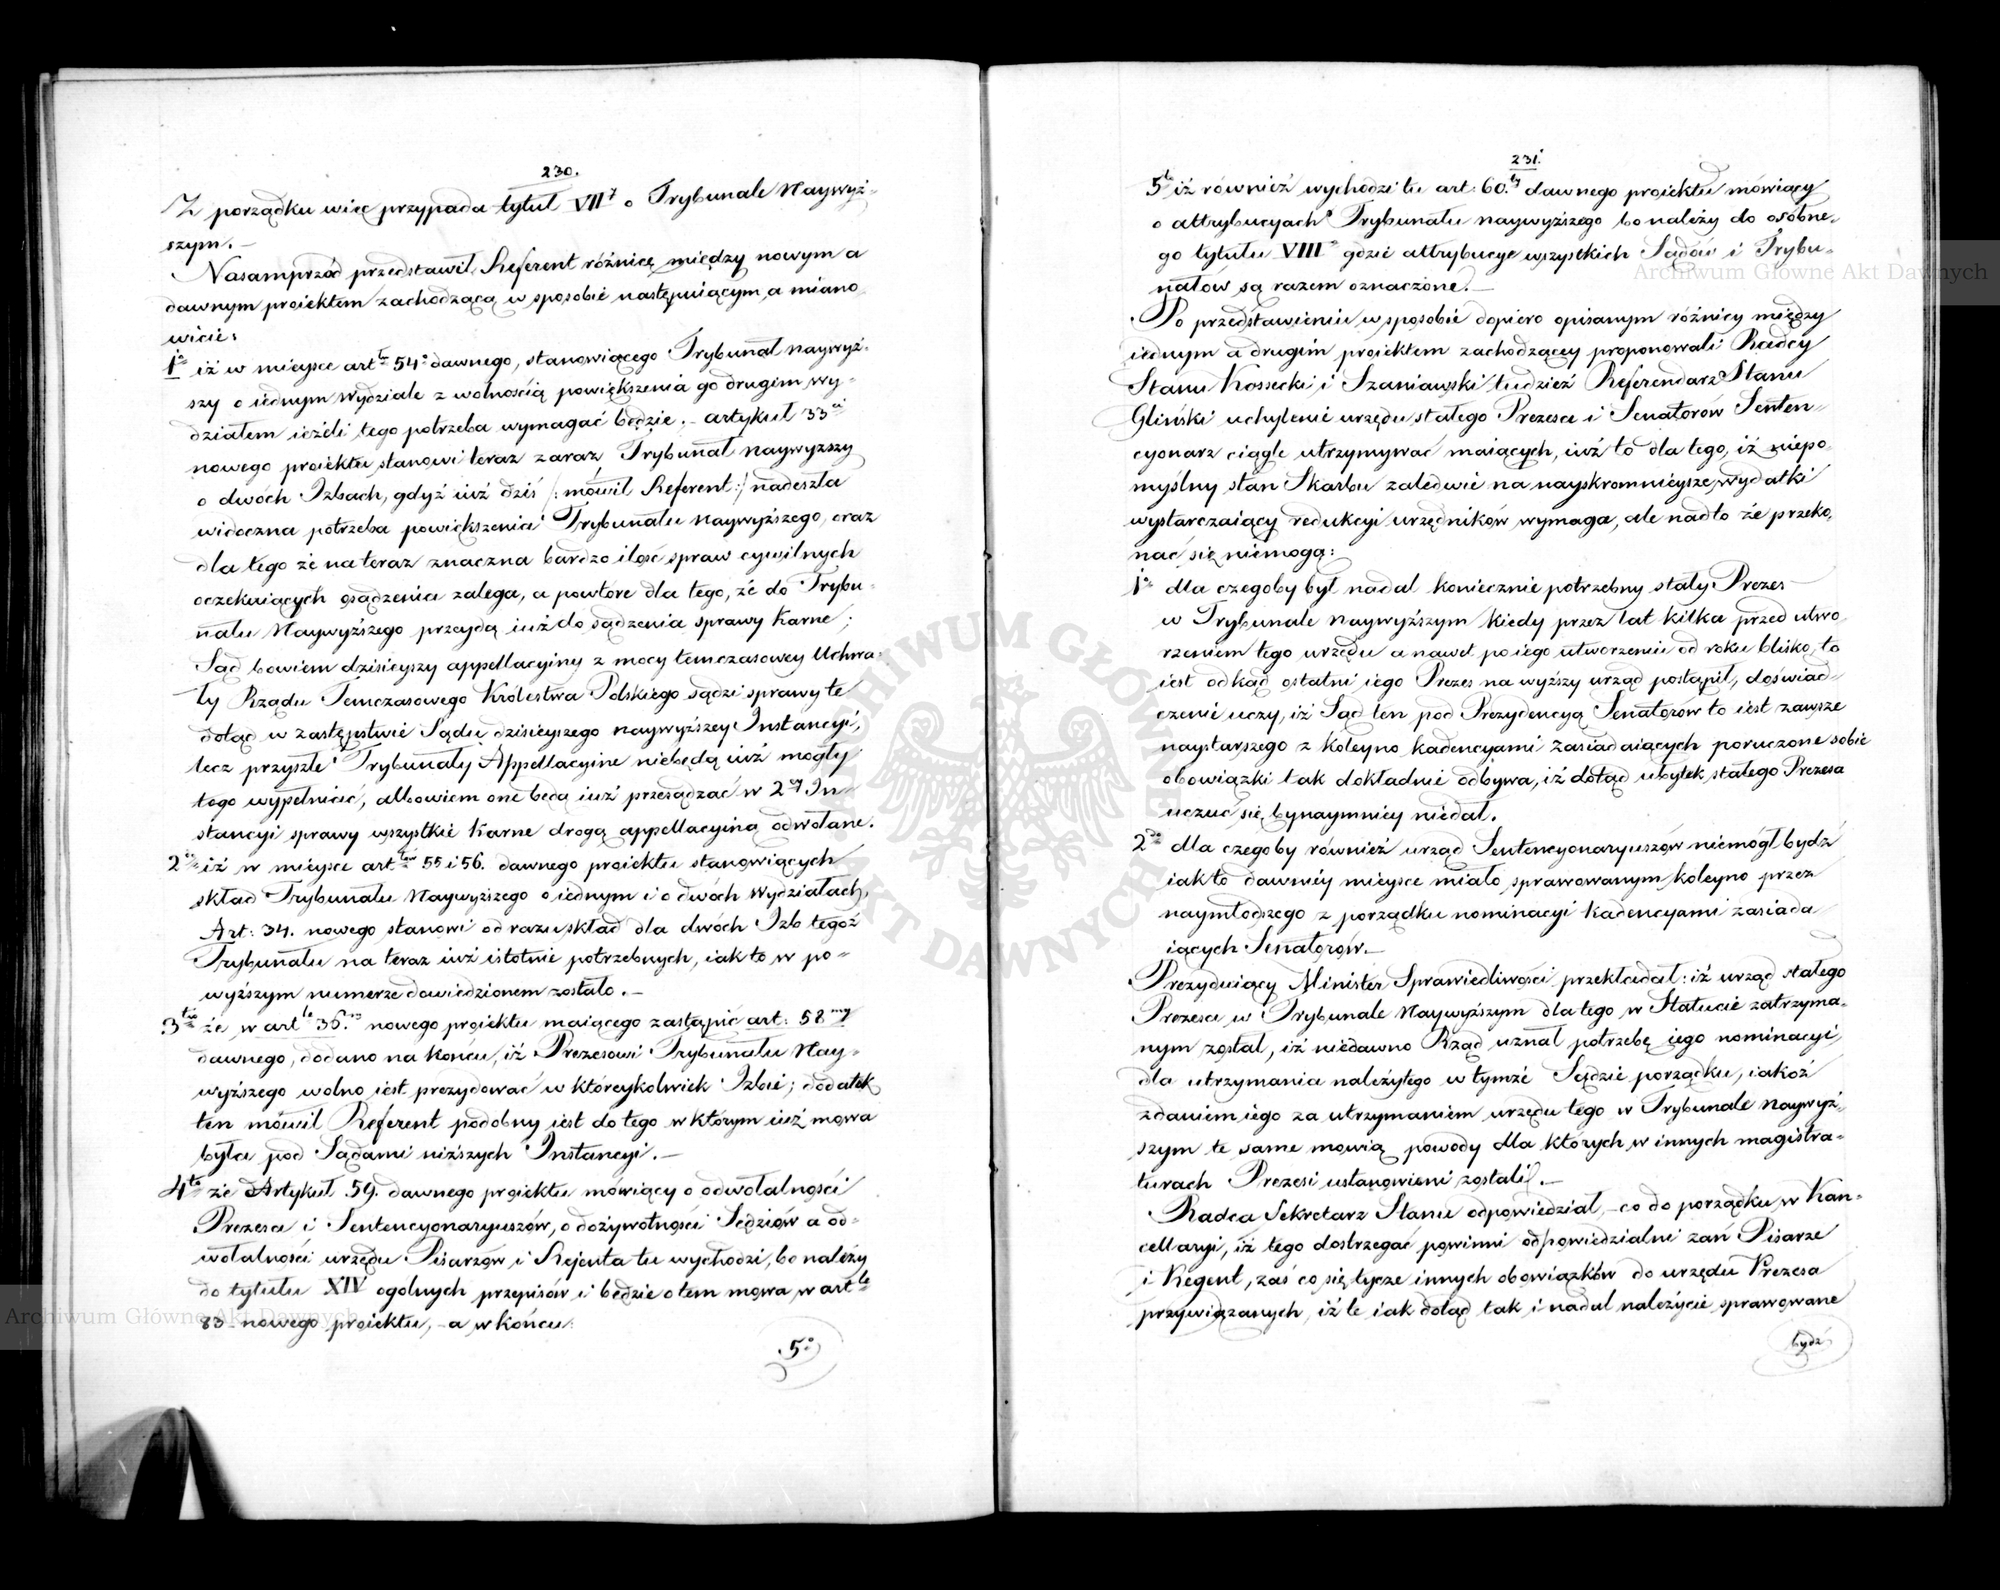 230.
Z porządku więc przypada tytuł VII⁷ o Trybunale Naywyż-
szym. –
Nasamprzód przedstawił Referent różnicę między nowym a
dawnym proiektem zachodzącą w sposobie następuiącym, a miano
wicie:
1o iż w mieysce artłu 54o dawnego, stanowiącego Trybunał naywyż-
szy o iednym wydziale z wolnością powiększenia go drugim wy-
działem ieżeli tego potrzeba wymagać będzie. – artykuł 33ci
nowego proiektu stanowi teraz zaraz Trybunał naywyzszy
o dwóch Izbach, gdyż iuż dziś /: mówił Referent :/ nadeszła
widoczna potrzeba powiększenia Trybunału naywyższego, oraz
dla tego że na teraz znaczna bardzo ilość spraw cywilnych
oczekuiących osądzenia zalega, a powtóre dla tego, że do Trybu-
nału Naywyższego przeydą iuż do sądzenia sprawy Karne;
Sąd bowiem dzisieyszy appellacyiny z mocy temczasowey Uchwa-
ły Rządu Temczasowego Królestwa Polskiego sądzi sprawy te
dotąd w zastępstwie Sądu dzisieyszego naywyższey Instancyi,
lecz przyszłe Trybunały Appellacyine niebędą iuż mogły
tego wypełnić, albowiem one będą iuż przesądzać w 2ey In-
stancyi sprawy wszystkie Karne drogą appellacyiną odwołane.
2o iż w mieysce artłów 55 i 56. dawnego proiektu stanowiących
skład Trybunału Naywyższego o iednym i o dwóch Wydziałach,
Art: 34. nowego stanowi od razu skład dla dwóch Izb tegoż
Trybunału na teraz iuż istotnie potrzebnych, iak to w po-
wyższym numerze dowiedzionem zostało. –
3tio że w artle 36.m nowego proiektu maiącego zastąpić art: 58my
dawnego, dodano na końcu, iż Prezesowi Trybunału Nay-
wyższego wolno iest prezydować w któreykolwiek Izbie; dodatek
ten mówił Referent podobny iest do tego w którym iuż mowa
była pod Sądami niższych Instancyi. –
4to że Artykuł 59. dawnego proiektu mówiący o odwołalności
Prezesa i Sentencyonaryuszów, o dożywotności Sędziów a od-
wołalności urzędu Pisarzów i Rejenta tu wychodzi, bo należy
do tytułu XIV ogólnych przepisów i będzie o tem mowa w artle
83 nowego proiektu, – a w końcu
5o
231.
5to iż również wychodzi tu art: 60.ty dawnego proiektu mówiący
o attrybucyach Trybunału naywyższego bo należy do osobne-
go tytułu VIII gdzie attrybucye wszystkich Sądów i Trybu-
nałów są razem oznaczone. –
Po przedstawieniu w sposobie dopiero opisanym różnicy między
iednym a drugim proiektem zachodzącey proponowali Radcy
Stanu Kossecki i Szaniawski tudzież Referendarz Stanu
Gliński uchylenie urzędu stałego Prezesa i Senatorów Senten-
cyonarz ciągle utrzymywać maiących, iuż to dla tego, iż niepo-
myślny stan Skarbu zaledwie na nayskromnieysze wydatki
wystarczaiący redukcyi urzędników wymaga, ale nadto że przeko-
nać się niemogą:
1o dla czegoby był nadal koniecznie potrzebny stały Prezes
w Trybunale naywyższym kiedy przez lat kilka przed utwo-
rzeniem tego urzędu a nawet po iego utworzeniu od roku blisko, to
iest odkąd ostatni iego Prezes na wyższy urząd postąpił, doświad-
czenie uczy, iż Sąd ten pod Prezydencyą Senatorów to iest zawsze
naystarszego z koleyno kadencyami zasiadaiących poruczone sobie
obowiązki tak dokładnie odbywa, iż dotąd ubytek stałego Prezesa
uczuć się bynaymniey niedał.
2do dla czegoby również urząd Sentencyonaryuszów niemógł bydź
iak to dawniéy mieysce miało sprawowanym koleyno przez
naymłodszego z porządku nominacyi kadencyami zasiada
iących Senatorów. –
Prezyduiący Minister Sprawiedliwości przekładał: iż urząd stałego
Prezesa w Trybunale Naywyższym dla tego w Statucie zatrzyma-
nym został, iż niedawno Rząd uznał potrzebę iego nominacyi,
dla utrzymania należytego w tymże Sądzie porządku, iakoż
zdaniem iego za utrzymaniem urzędu tego w Trybunale Naywyż-
szym te same mówią powody dla których w innych magistra-
turach Prezesi ustanowieni zostali. –
Radca Sekretarz Stanu odpowiedział, – co do porządku w Kan-
cellaryi, iż tego dostrzegać powinni odpowiedzialni zań Pisarze
i Regent, zaś co się tycze innych obowiązków do urzędu Prezesa
przywiązanych, iż te iak dotąd tak i nadal należycie sprawowane
bydz
Archiwum Główne Akt Dawnych
Archiwum Główne Akt Dawnych
ARCHIWUM GŁÓWNE AKT DAWNYCH